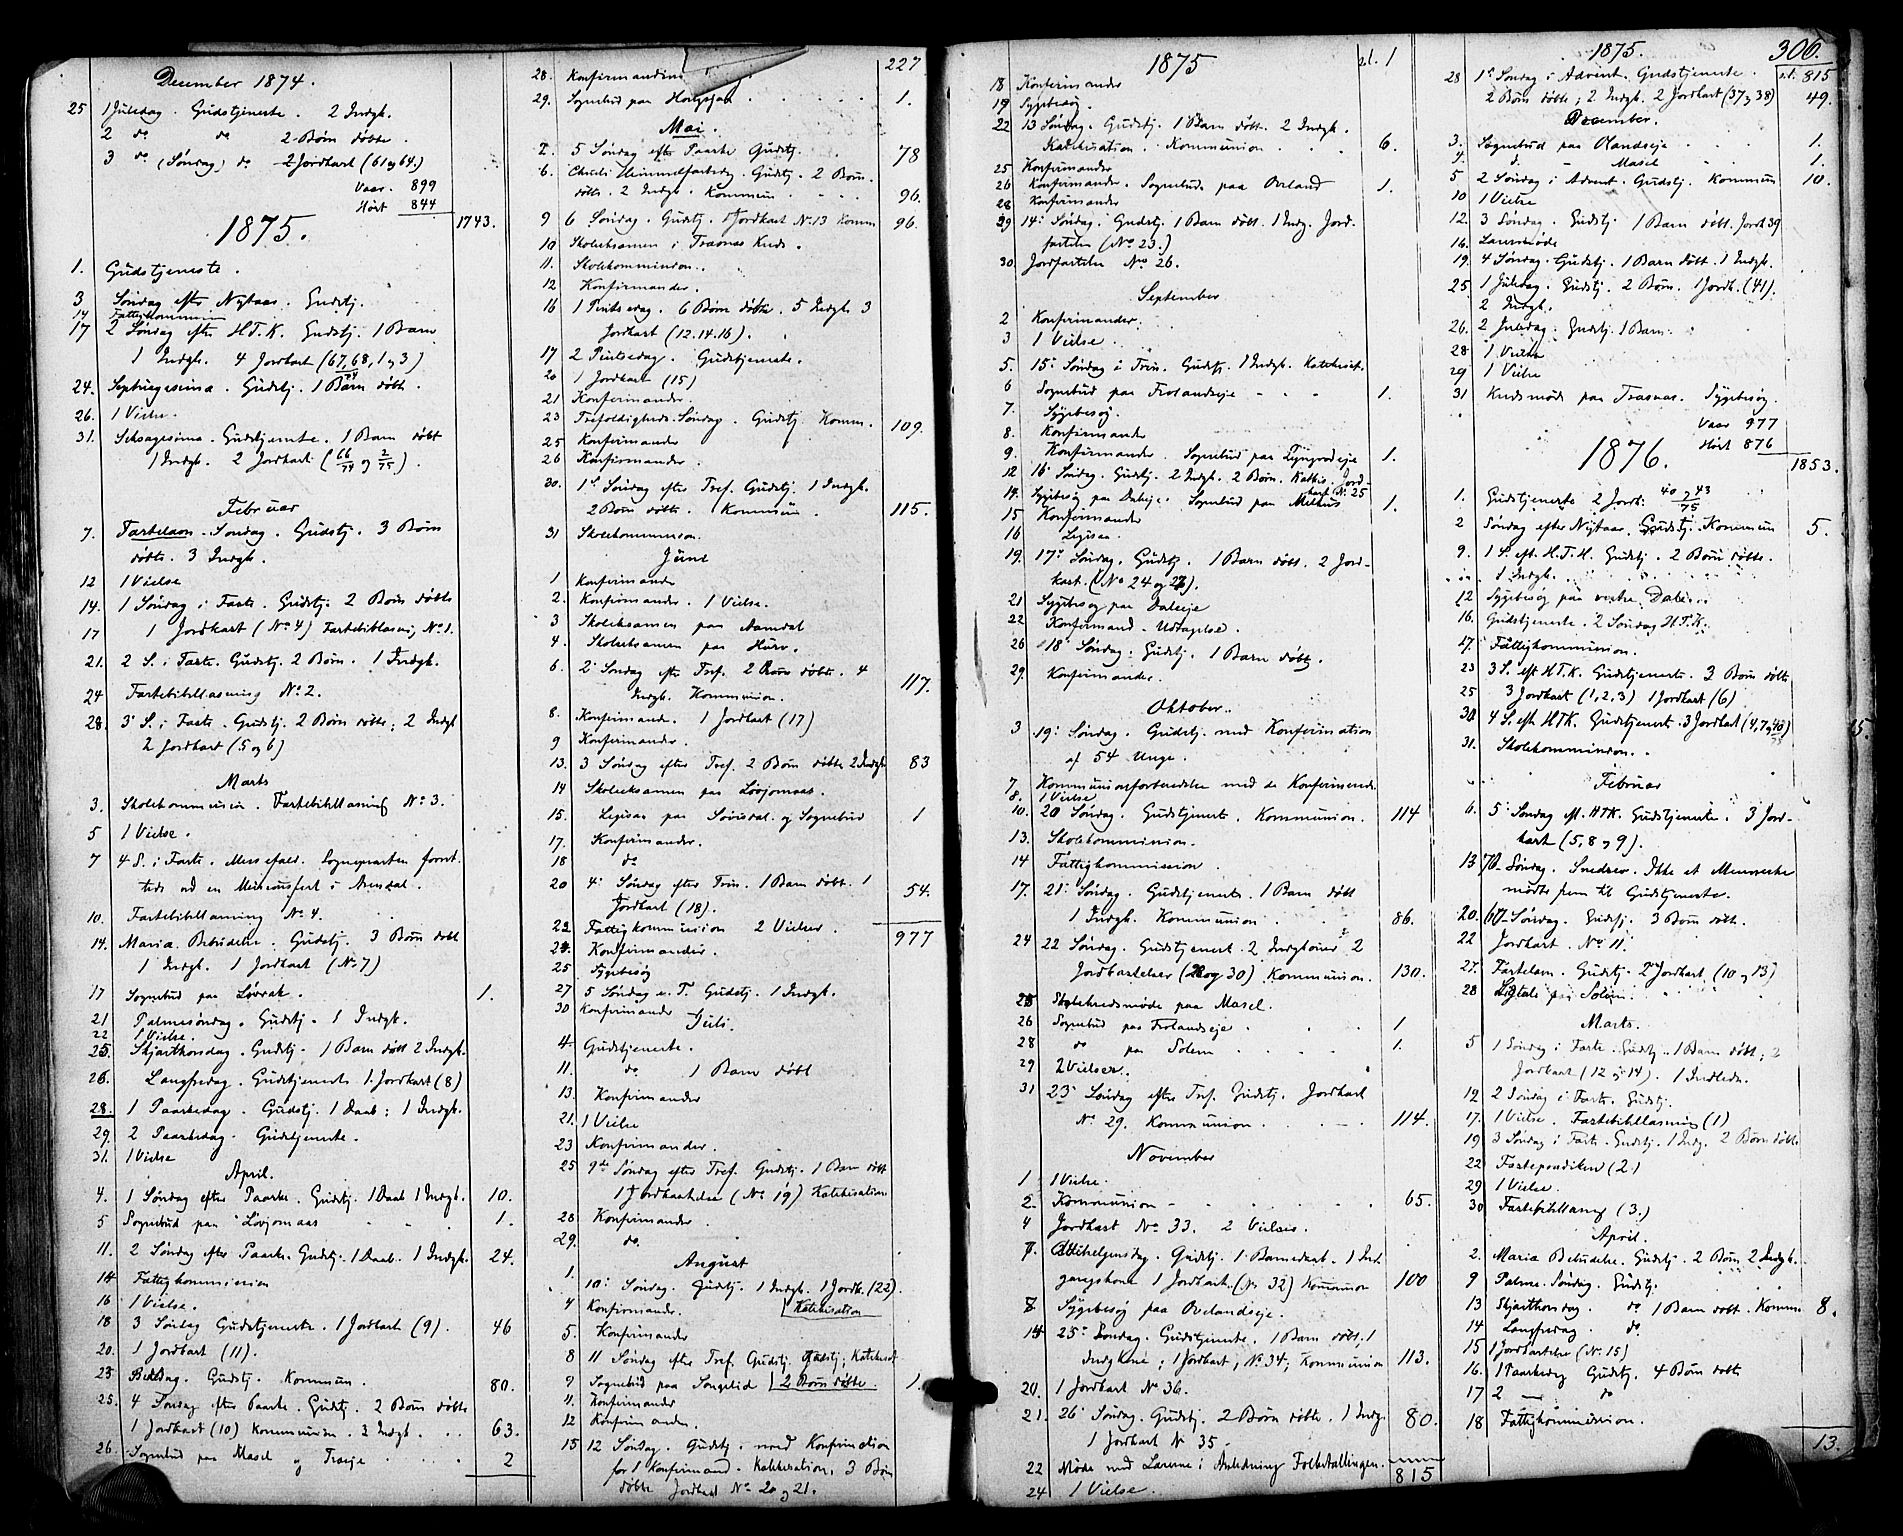 December 1874.
25 1 Juledag. Gudstjeneste. 2 Indgk.
2 do do 2 Børn døbte.
3 do (Søndag) do 2 Jordkast (61 og 64.)
Vaar. 899
Høst 844
1743.
1875.
1. Gudstjeneste.
3 Søndag efter Nytaar. Gudstj.
14 Fattigkommission
17 2 Søndag efter H.T.K. Gudstj. 1 Barn
1 Indgk. 4 Jordkast (67, 68, 1 og 3)
74
24. Septuagesima. Gudstj. 1 Barn døbt.
26. 1 Vielse.
31. Seksagesima. Gudstjeneste. 1 Barn døbt
1 Indgk. 2 Jordkast (66/74 og 2/75).
Februar
7. Fastelavn. Søndag. Gudstj. 3 Børn
døbte. 3 Indgk.
12 1 Vielse
14. 1 Søndag i Faste. Gudstj. 2 Børn døbte
17 1 Jordkast (No 4) Fastebibllæsning No 1.
21. 2 S. i Faste. Gudstj. 2 Børn. 1 Indgk.
24 Fastebibellæsning No 2.
28. 3 S. i Faste. Gudstj. 2 Børn døbte; 2 Indgk
2 Jordkast (5 og 6)
Marts
3. Skolekommission. Fastebibellæsning No 3.
5 1 Vielse.
7 4 S. i Faste. Messefald. Sognepresten
ved en Missionsfest i Arendal.
10. Fastebibellæsning No 4.
14. Maria Bebudelse. Gudstj. 3 Børn døbt
1 Indgk. 1 Jordkast (No 7)
17 Sognebud paa Løvrak. 1.
21 Palmesøndag. Gudstj. 1 Indgk.
22 1 Vielse.
25. Skjærthorsdag. Gudstj. 1 Barn døbt 2 Indgk.
26. Langfredag. Gudstjeneste 1 Jordkast (8)
28. 1 Paaskedag. Gudstj. 1 Daab; 1 Indgk.
29. 2 Paaskedag. Gudstjeneste.
31. 1 Vielse
April.
4. 1 Søndag efter Paaske. Gudstj. 1 Daab 1 Indgk. 10.
5 Sognebud paa Løvjomaas 1.
11. 2 Søndag efter Paaske. Gudstj. 1 Daab. 1 Indgk. 24.
14 Fattigkommission
16 1 Vielse.
18 3 Søndag Gudstjeneste. 1 Jordkast (9). 46
20. 1 Jordkast (11).
23 Bededag. Gudstj. Kommun. 80.
25. 4 Søndag efter Paaske. Gudstj. 2 Børn døbte
1 Jordkast (10) Kommunion. 2 Indgk. 63.
26. Sognebud paa Masel og 2
28. Konfirmandine
227
29. Sognebud paa 1.
Mai.
2. 5 Søndag efter Paaske Gudstj. 78
6. Christi Himmelfartsdag. Gudstj. 2 Børn
døbte. 2 Indgk. Kommun. 96.
9 6 Søndag. Gudstj. 1 Jordkast No 13 Komm 96.
10 Skoleeksamen i Trasnes Kreds.
11. Skolekommission.
12 Konfirmander.
16 1 Pintsedag. 6 Børn døbte. 5 Indgk 3
Jordkast (12. 14. 16).
17 2 Pintsedag. Gudstjeneste.
20 1 Jordkast (15)
21 Konfirmander.
23 Trefoldigheds-Søndag. Gudstj. Komm. 109.
25 Konfirmander
26 Konfirmander.
30. 1ste Søndag efter Tref. Gudstj. 1 Indgk.
2 Børn døbte. Kommun. 115.
31 Skolekommission.
June
1 Konfirmander
2. Konfirmander. 1 Vielse.
3 Skoleeksamen paa Aamdal
4. Skoleeksamen paa Hurv.
6. 2 Søndag efter Tref. 2 Børn døbte. 4
Indgk. Kommunion. 117.
8. Konfirmand. 1 Jordkast (17)
9 Konfirmander.
13. 3 Søndag efter Tref. 2 Børn døbte 2 Indgk 83
14 Skoleeksamen paa Løvjomaas.
15. Ligsen paa og Sognebud 1
17. Konfirmander.
18 do
20 4. Søndag efter Trin. 1 Barn døbt. 1
Jordkast (18). 54.
22 Fattigkommission 2 Vielser. 977
24. Konfirmander.
25 Sygebesøg
27 5 Søndag e. T. Gudstj. 1 Indgk.
30 Konfirmander
Juli.
4. Gudstjeneste.
11. do 1 Barn døbt
13. Konfirmander
21. 1 Vielse
23 Konfirmander.
25 9de Søndag efter Tref. Gudstj. 1 Barn døbt
1 Jordkastelse (No 19) Katekisation
28 Konfirmander.
29. do.
August
1. 10. Søndag. Gudstj. 1 Indgk. 1 Jordk. (22).
4 Konfirmander. Katekisation
5. Konfirmander
8 11 Søndag efter Tref. Gudstj. Gudstj; Katekisat
9 Sognebud paa Songelid 2 Børn døbte. 1.
11. Konfirmander
12 Konfirmander.
15 12 Søndag. Gudstj. med Konfirmation
for 1 Konfirmand. Katekisation. 3 Børn
døbte Jordkast No 20 og 21.
1875
sl. 1
18 Konfirmander
19 Sygebesøg
22 13 Søndag. Gudstj. 1 Barn døbt. 2 Indgk.
Katekisation. Kommunion. 6.
25 Konfirmander
26 Konfirmander. Sognebud paa Oveland 1.
28 Konfirmander
29 14. Søndag. Gudstj. 1 Barn døbt. 1 Indg. Jord-
(No 23.)
30. No 26.
September
2 Konfirmander.
3 1 Vielse.
5. 15. Søndag e Trin. Gudstj. 1 Indgk. Katekisat.
6 Sognebud paa Frolandseje 1.
7. Sygebesøg.
8. Konfirmander
9. Konfirmander. Sognebud paa 1.
12 16. Søndag. Gudstj. 2 Indgk. 2 Børn. Jord-
kast No 25
14. Sygebesøg paa Daleeje. Sognebud paa 1.
15 Konfirmander
16
19. 17. Søndag. Gudstj. 1 Barn døbt. 2 Jord-
kast. (No 24 og 27).
21 Sygebesøg paa Daleeje
22 Konfirmand-Udtagelse.
26 18. Søndag. Gudstj. 1 Barn døbt.
29. Konfirmander.
Oktober.
3 19. Søndag. Gudstj. med Konfirmation
af 54 Unge.
7 Kommunionsforberedelse med de Konfirmerede
8. 1 Vielse
10. 20 Søndag. Gudstjeneste. Kommunion. 114
13. Skolekommission.
14 Fattigkommission.
17. 21. Søndag. Gudstjeneste. 1 Barn døbt
1 Indgk. Kommunion 86.
24 22 Søndag. Gudstjenest. 2 Indgkoner 2
Jordkastelser (28 og 30) Kommunion. 130.
25 Skolekredsmøde paa Masel.
26 Sognebud paa Frolandseje 1
28 do paa Solem 1.
29 2 Vielser.
31 23 Søndag efter Tref. Gudstj. Jordkast
No. 29. Kommunion 114.
November
1 1 Vielse.
2. Kommunion 65.
4 Jordkast No 33. 2 Vielser.
7. Allehelgensdag. Gudstj. 1 Barnedaab. 1 Ind
gangskone 1 Jordkast. (No 32) Kommunion 100
8 Sygebesøg paa Ovelandseje.
14 25. Søndag. Gudstjeneste. 1 Barn døbt. 1
Indgkone; 1 Jordkast; No 34; Kommunion 113.
20. 1 Jordkast No 36.
21. 26. Søndag. Gudstj. 2 Børn døbte. 1 Indg. 80.
1 Jordkast N 35.
22 Møde med Lærerne i Anledning Folketællingen.
815
24 1 Vielse.
1875. 306.
sl. 815
28 1ste Søndag i Advent. Gudstjeneste.
2 Børn døbte; 2 Indgk. 2 Jordkast (37 og 38) 49.
December.
3. Sognebud paa 1.
4. d. - Masel 1.
5 2 Søndag i Advent. Gudstj. Kommun 10.
10 1 Vielse
12. 3 Søndag. Gudstj. 1 Barn døbt. Jordk 39
16. Lærermøde
19. 4 Søndag. Gudstj. 1 Barn døbt. 1 Indgk.
25. 1 Juledag. Gudstj. 2 Børn. 1 Jordk. (41).
2 Indgk.
26. 2 Juledag. Gudstj. 1 Barn.
28 1 Vielse
29 1 Vielse
31 Kredsmøde paa Trasnes. Sygebesøg.
Vaar 977
Høst 876
1853.
1876.
1. Gudstjeneste 2 Jord. 40 og 43
75
2 Søndag efter Nytaar. Gudstj. Kommun 5.
9. 1 S. eft. H.T.K. Gudstj. 2 Børn døbte.
1 Indgk.
12 Sygebesøg paa Dale
16. Gudstjeneste. 2 Søndag H.T.K.
17. Fattigkommission.
23 3 S. eft HTK. Gudstjeneste. 3 Børn døbte
25 3 Jordkast (1, 2, 3) 1 Jordkast (6)
30 4 S. eft HTK. Gudstjeneste. 3 Jordkast (4, 7 og 48)
75
31. Skolekommission.
Februar
6. 5. Søndag eft. HTK. Gudstjeneste. 3 Jord-
kast (5, 8 og 9).
13 Søndag. Snedrev. Ikke et Menneske
mødte frem til Gudstjeneste.
20. Søndag. Gudstj. 3 Børn døbt.
22 Jordkast. No 11.
27. Fastelavn. Gudstj. 2 Jordkast (10 og 13)
28 Ligtale paa Solem.
Marts.
5 1 Søndag i Faste. Gudstj. 1 Barn døbt; 2
Jordkast (12 og 14). 1 Indledn.
12 2 Søndag i Faste. Gudstj.
17. 1 Vielse. Fastebibellæsning (1)
19 3 Søndag i Faste. Gudstj. 1 Indg. 2 Børn døbte
22 Fasteprædiken (2)
29 1 Vielse.
30 Fastebibellæsning (3.)
April.
2. Maria Bebudelse. Gudstj. 2 Børn 2 Indgk.
9 Palme-Søndag. Gudstj.
13 Skjærthorsdag. do 1 Barn døbt. Komm. 8.
14 Langfredag. do.
15 1 Jordkastelse (No. 15)
16. 1 Paaskedag Gudstj. 4 Børn døbte
17 2 — do
18 Fattigkommission.
13.